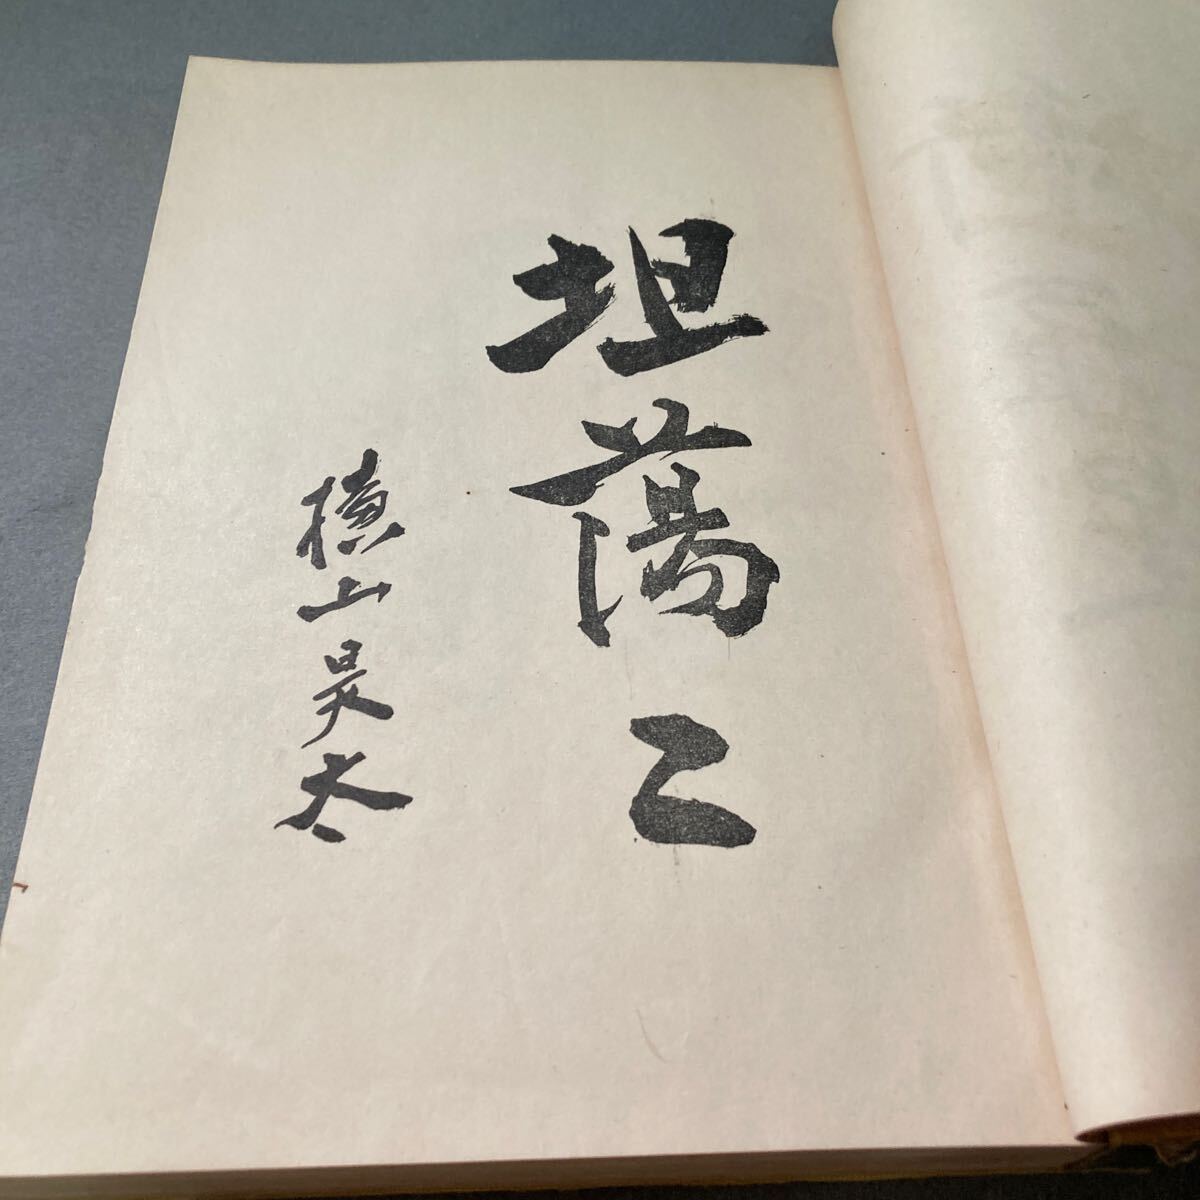 坦蕩〻
横山昊太